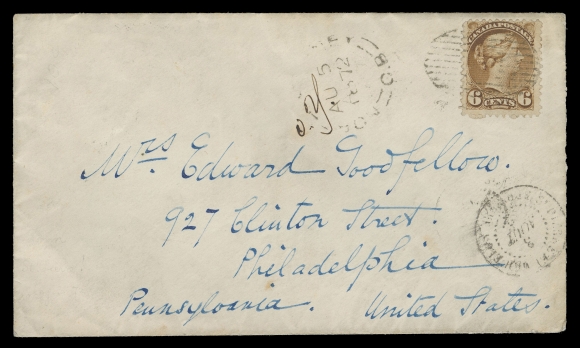 CANADA POSTAGE
6 CENTS 6
AU 5
72
Mrs. Edward Goodfellow.
927 Clinton Street.
Philadelphia
Pennsylvania. United States.